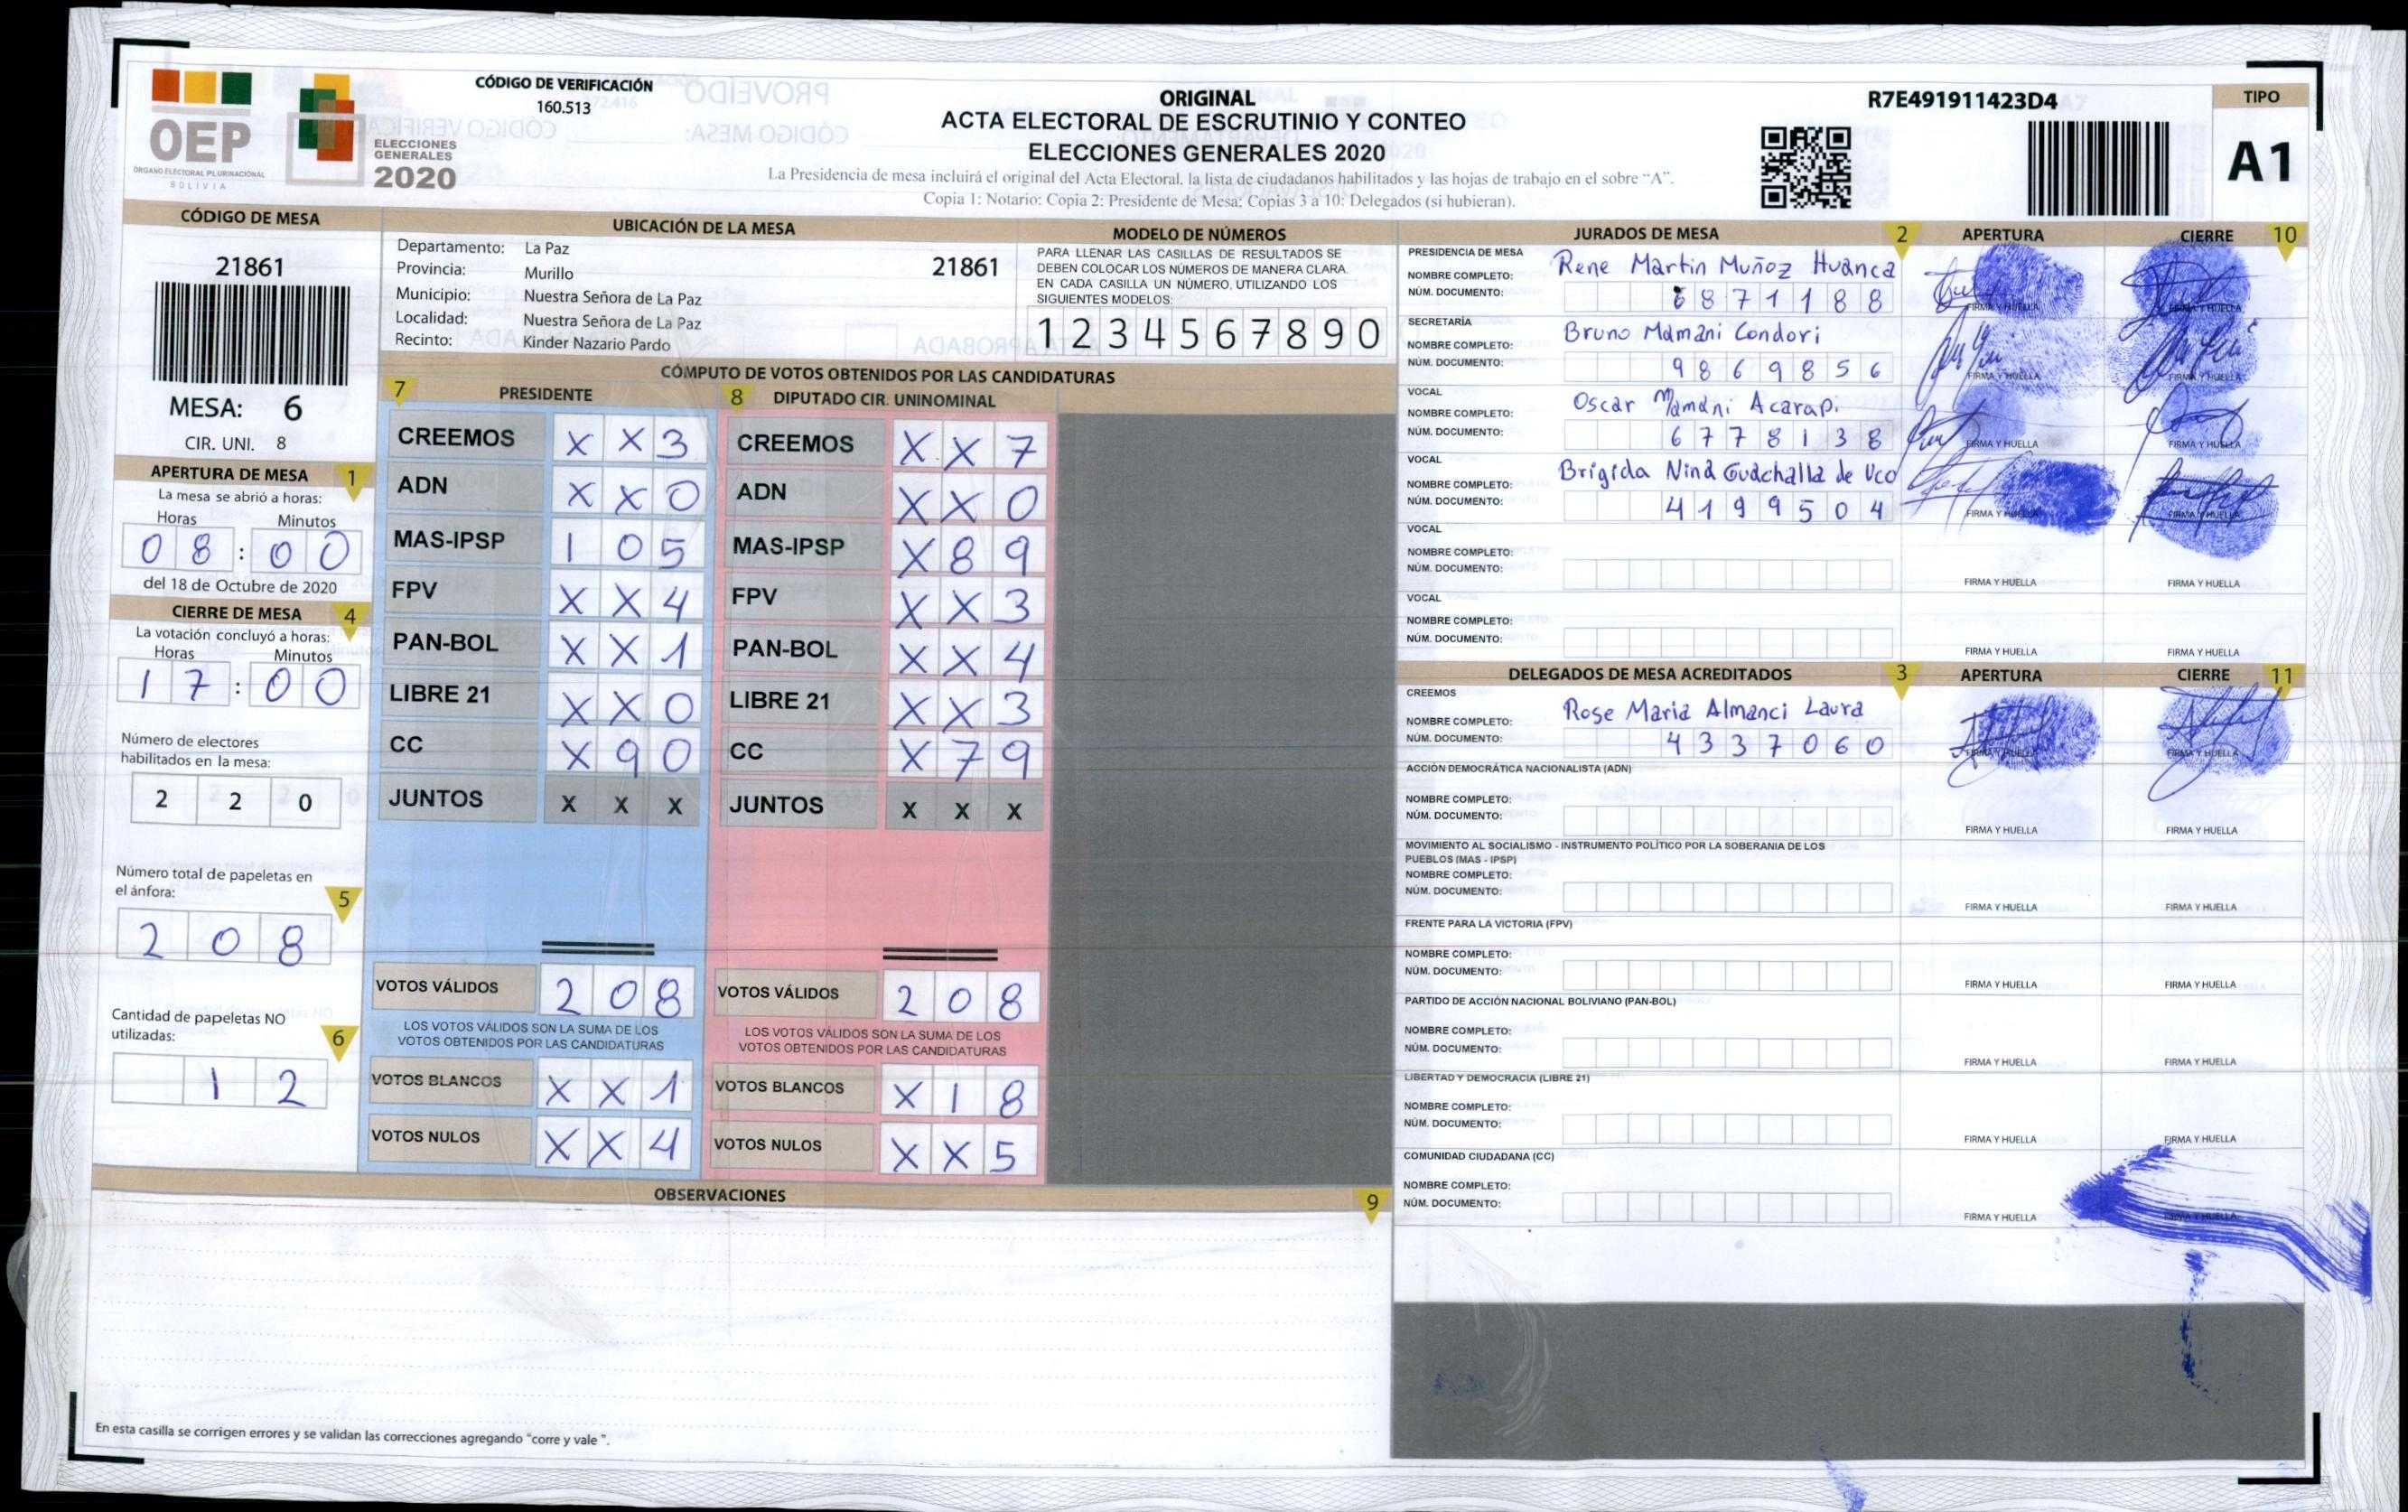 CÓDIGO DE VERIFICACIÓN
160.513
OEP
ÓRGANO ELECTORAL PLURINACIONAL
BOLIVIA
ELECCIONES
GENERALES
2020
ORIGINAL
ACTA ELECTORAL DE ESCRUTINIO Y CONTEO
ELECCIONES GENERALES 2020
La Presidencia de mesa incluirá el original del Acta Electoral, la lista de ciudadanos habilitados y las hojas de trabajo en el sobre “A”.
Copia 1: Notario; Copia 2: Presidente de Mesa; Copias 3 a 10: Delegados (si hubieran).
R7E491911423D4
TIPO
A1
CÓDIGO DE MESA
21861
MESA: 6
CIR. UNI. 8
UBICACIÓN DE LA MESA
Departamento: La Paz
21861
Provincia: Murillo
Municipio: Nuestra Señora de La Paz
Localidad: Nuestra Señora de La Paz
Recinto: Kinder Nazario Pardo
MODELO DE NÚMEROS
PARA LLENAR LAS CASILLAS DE RESULTADOS SE
DEBEN COLOCAR LOS NÚMEROS DE MANERA CLARA
EN CADA CASILLA UN NÚMERO, UTILIZANDO LOS
SIGUIENTES MODELOS:
1 2 3 4 5 6 7 8 9 0
APERTURA DE MESA 1
La mesa se abrió a horas:
Horas Minutos
0 8 : 0 0
del 18 de Octubre de 2020
CIERRE DE MESA 4
La votación concluyó a horas:
Horas Minutos
1 7 : 0 0
Número de electores
habilitados en la mesa:
2 2 0
Número total de papeletas en
el ánfora: 5
2 0 8
Cantidad de papeletas NO
utilizadas: 6
1 2
CÓMPUTO DE VOTOS OBTENIDOS POR LAS CANDIDATURAS
7 PRESIDENTE
CREEMOS X X 3
ADN X X 0
MAS-IPSP 1 0 5
FPV X X 4
PAN-BOL X X 1
LIBRE 21 X X 0
CC X 9 0
JUNTOS X X X
VOTOS VÁLIDOS 2 0 8
LOS VOTOS VÁLIDOS SON LA SUMA DE LOS
VOTOS OBTENIDOS POR LAS CANDIDATURAS
VOTOS BLANCOS X X 1
VOTOS NULOS X X 4
8 DIPUTADO CIR. UNINOMINAL
CREEMOS X X 7
ADN X X 0
MAS-IPSP X 8 9
FPV X X 3
PAN-BOL X X 4
LIBRE 21 X X 3
CC X 7 9
JUNTOS X X X
VOTOS VÁLIDOS 2 0 8
LOS VOTOS VÁLIDOS SON LA SUMA DE LOS
VOTOS OBTENIDOS POR LAS CANDIDATURAS
VOTOS BLANCOS X 1 8
VOTOS NULOS X X 5
OBSERVACIONES 9
En esta casilla se corrigen errores y se validan las correcciones agregando “corre y vale ”.
JURADOS DE MESA 2 APERTURA CIERRE 10
PRESIDENCIA DE MESA
NOMBRE COMPLETO: Rene Martin Muñoz Huanca
NÚM. DOCUMENTO: 6 8 7 1 1 8 8
FIRMA Y HUELLA FIRMA Y HUELLA
SECRETARÍA
NOMBRE COMPLETO: Bruno Mamani Condori
NÚM. DOCUMENTO: 9 8 6 9 8 5 6
FIRMA Y HUELLA FIRMA Y HUELLA
VOCAL
NOMBRE COMPLETO: Oscar Mamani Acarapi
NÚM. DOCUMENTO: 6 7 7 8 1 3 8
FIRMA Y HUELLA FIRMA Y HUELLA
VOCAL
NOMBRE COMPLETO: Brigida Nina Guachalla de Uco
NÚM. DOCUMENTO: 4 1 9 9 5 0 4
FIRMA Y HUELLA FIRMA Y HUELLA
VOCAL
NOMBRE COMPLETO:
NÚM. DOCUMENTO:
FIRMA Y HUELLA FIRMA Y HUELLA
VOCAL
NOMBRE COMPLETO:
NÚM. DOCUMENTO:
FIRMA Y HUELLA FIRMA Y HUELLA
DELEGADOS DE MESA ACREDITADOS 3 APERTURA CIERRE 11
CREEMOS
NOMBRE COMPLETO: Rose Maria Almanci Laura
NÚM. DOCUMENTO: 4 3 3 7 0 6 0
FIRMA Y HUELLA FIRMA Y HUELLA
ACCIÓN DEMOCRÁTICA NACIONALISTA (ADN)
NOMBRE COMPLETO:
NÚM. DOCUMENTO:
FIRMA Y HUELLA FIRMA Y HUELLA
MOVIMIENTO AL SOCIALISMO - INSTRUMENTO POLÍTICO POR LA SOBERANIA DE LOS
PUEBLOS (MAS - IPSP)
NOMBRE COMPLETO:
NÚM. DOCUMENTO:
FIRMA Y HUELLA FIRMA Y HUELLA
FRENTE PARA LA VICTORIA (FPV)
NOMBRE COMPLETO:
NÚM. DOCUMENTO:
FIRMA Y HUELLA FIRMA Y HUELLA
PARTIDO DE ACCIÓN NACIONAL BOLIVIANO (PAN-BOL)
NOMBRE COMPLETO:
NÚM. DOCUMENTO:
FIRMA Y HUELLA FIRMA Y HUELLA
LIBERTAD Y DEMOCRACIA (LIBRE 21)
NOMBRE COMPLETO:
NÚM. DOCUMENTO:
FIRMA Y HUELLA FIRMA Y HUELLA
COMUNIDAD CIUDADANA (CC)
NOMBRE COMPLETO:
NÚM. DOCUMENTO:
FIRMA Y HUELLA FIRMA Y HUELLA